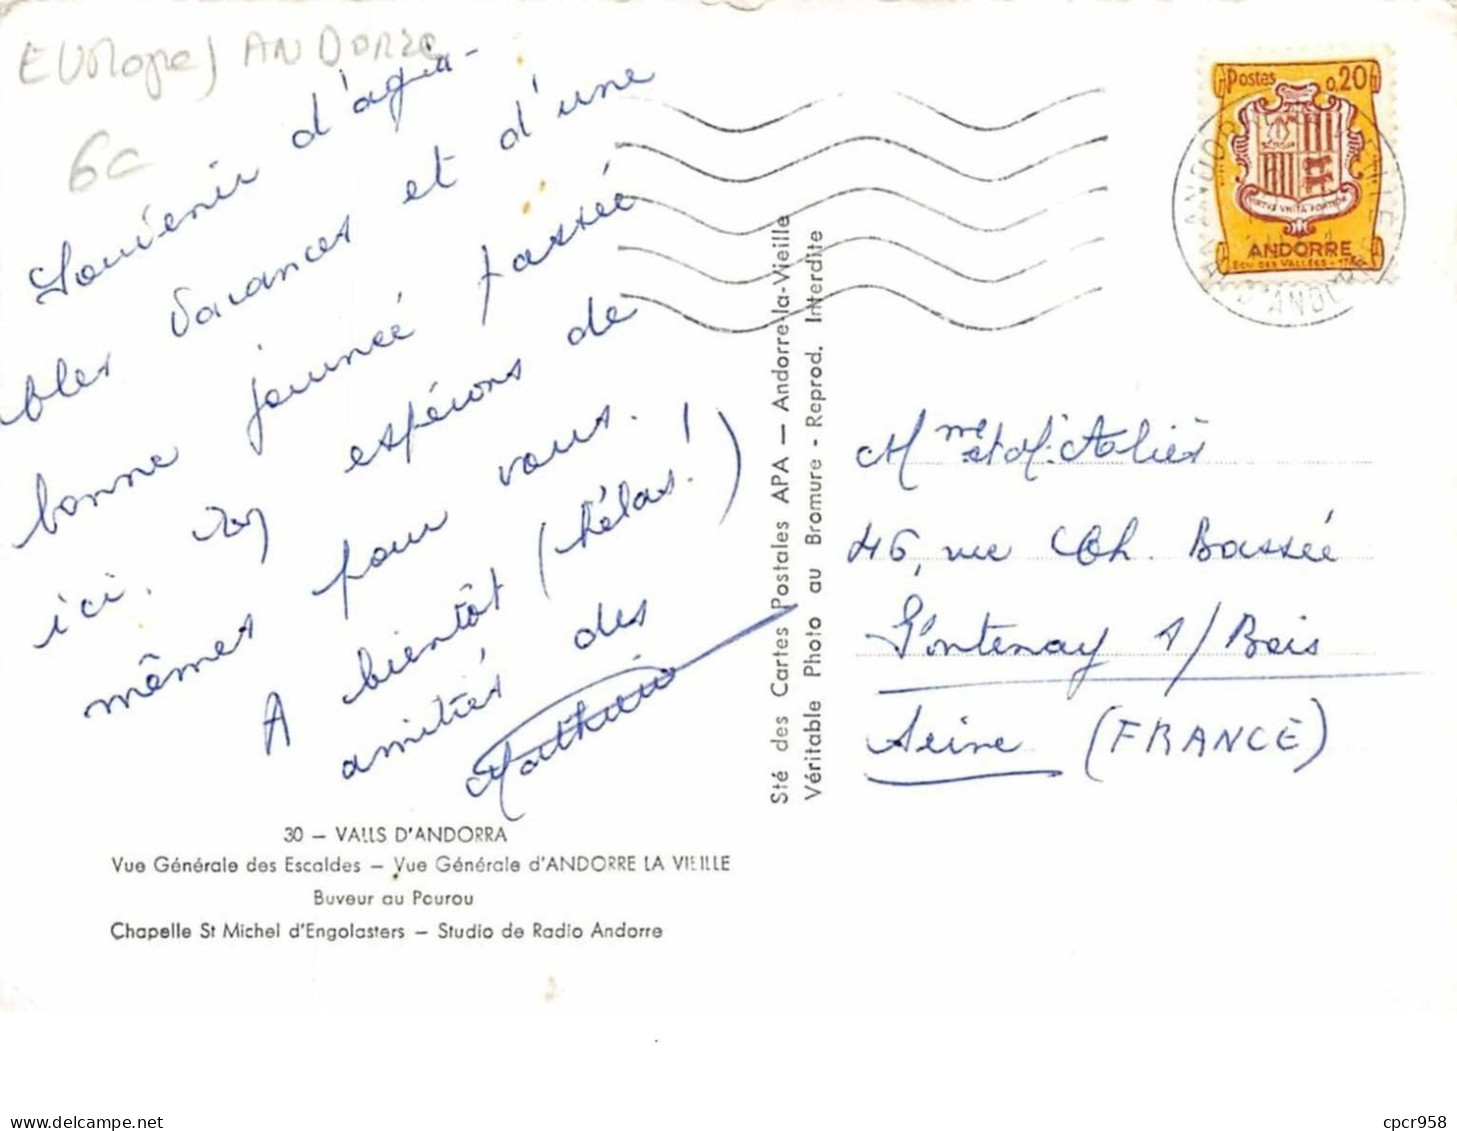 Europe / ANDORRE
6c
Souvenir d'agréa-
bles vacances et d'une
bonne journée passée
ici. espérons de
mêmes pour vous.
A bientôt (hélas!)
amitiés des
30 — VALLS D'ANDORRA
Vue Générale des Escaldes — Vue Générale d'ANDORRE LA VIEILLE
Buveur au Pourou
Chapelle St Michel d'Engolasters — Studio de Radio Andorre
Sté des Cartes Postales APA — Andorre-la-Vieille
Véritable Photo au Bromure - Reprod. Interdite
Postes 0,20
VIRTUS UNITA FORTIOR
ANDORRE
ECU DES VALLÉES
Mme et M. Aoliès
46, rue Ch. Bassée
Fontenay s/Bois
Seine (FRANCE)
www.delcampe.net
cpcr958